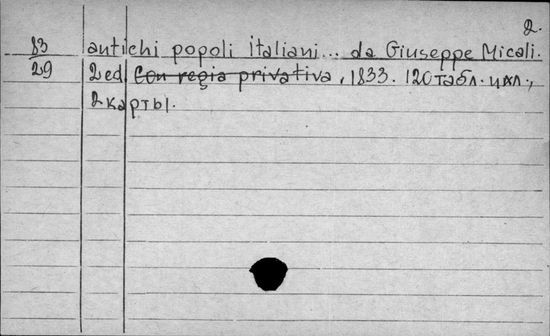 2.
83 antichi popoli italiani... da Giuseppe Micali.
29 2 ed. Con regia privativa, 1833. 120 табл. илл.,
2 карты.